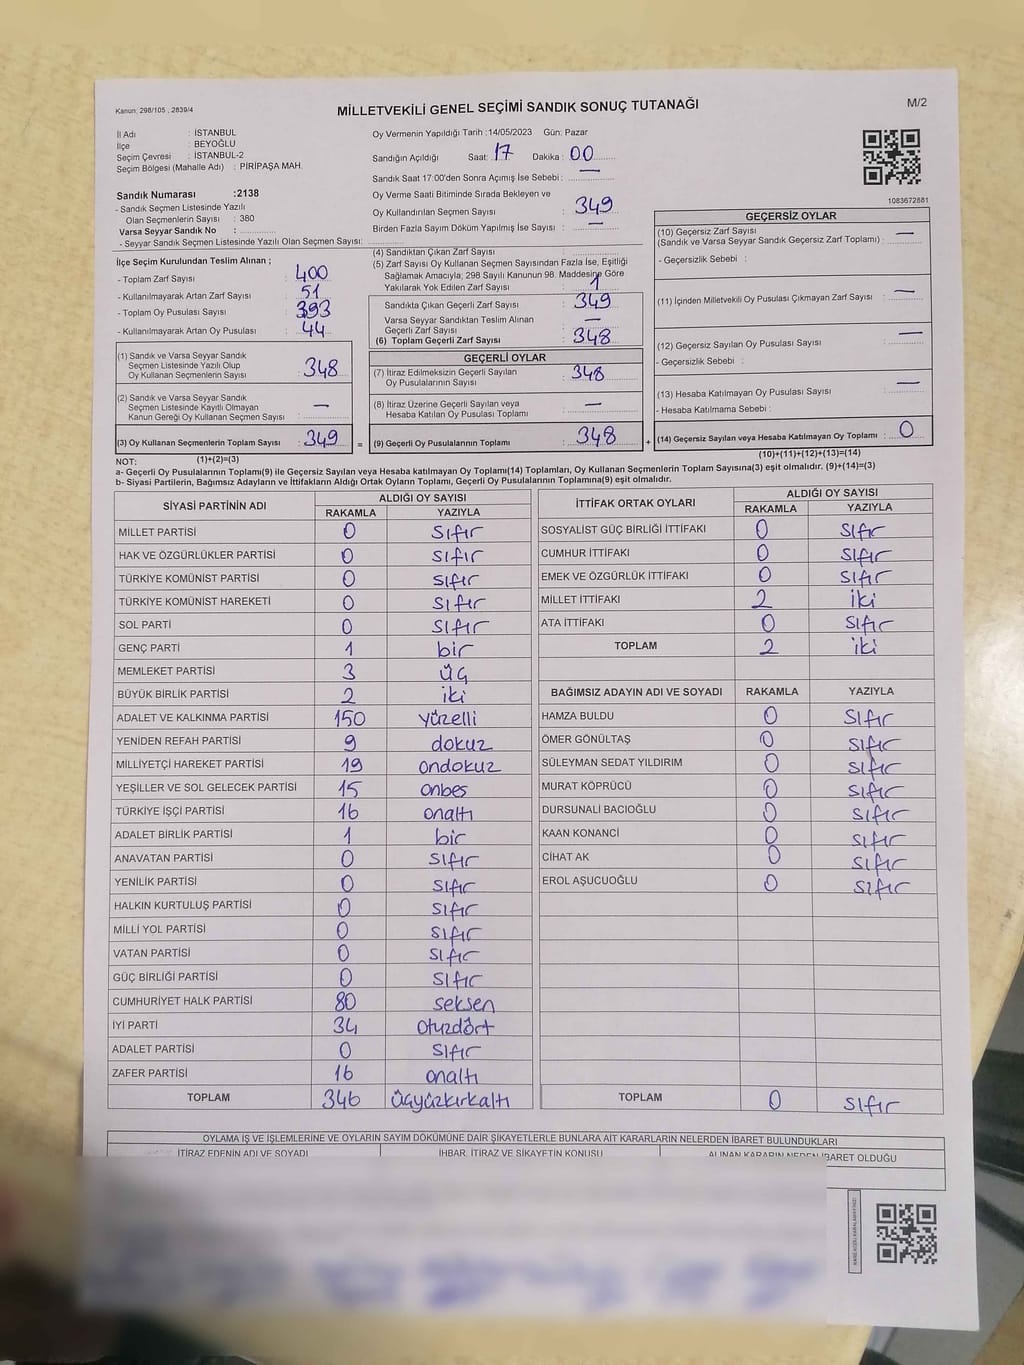 Kanun: 298/105 , 2839/4
MİLLETVEKİLİ GENEL SEÇİMİ SANDIK SONUÇ TUTANAĞI
M/2
İl Adı : İSTANBUL
İlçe : BEYOĞLU
Seçim Çevresi : İSTANBUL-2
Seçim Bölgesi (Mahalle Adı) : PİRİPAŞA MAH.
Sandık Numarası :2138
- Sandık Seçmen Listesinde Yazılı
Olan Seçmenlerin Sayısı : 380
Varsa Seyyar Sandık No :
- Seyyar Sandık Seçmen Listesinde Yazılı Olan Seçmen Sayısı:
Oy Vermenin Yapıldığı Tarih :14/05/2023 Gün: Pazar
Sandığın Açıldığı Saat: 17 Dakika : 00
Sandık Saat 17:00'den Sonra Açımış İse Sebebi : —
Oy Verme Saati Bitiminde Sırada Bekleyen ve
Oy Kullandırılan Seçmen Sayısı : 349
Birden Fazla Sayım Döküm Yapılmış İse Sayısı : —
1083672881
İlçe Seçim Kurulundan Teslim Alınan ;
- Toplam Zarf Sayısı : 400
- Kullanılmayarak Artan Zarf Sayısı : 51
- Toplam Oy Pusulası Sayısı : 393
- Kullanılmayarak Artan Oy Pusulası : 44
(1) Sandık ve Varsa Seyyar Sandık
Seçmen Listesinde Yazılı Olup
Oy Kullanan Seçmenlerin Sayısı : 348
(2) Sandık ve Varsa Seyyar Sandık
Seçmen Listesinde Kayıtlı Olmayan
Kanun Gereği Oy Kullanan Seçmen Sayısı : —
(3) Oy Kullanan Seçmenlerin Toplam Sayısı : 349 =
(1)+(2)=(3)
(4) Sandıktan Çıkan Zarf Sayısı :
(5) Zarf Sayısı Oy Kullanan Seçmen Sayısından Fazla İse, Eşitliği
Sağlamak Amacıyla; 298 Sayılı Kanunun 98. Maddesine Göre
Yakılarak Yok Edilen Zarf Sayısı : 1
Sandıkta Çıkan Geçerli Zarf Sayısı : 349
Varsa Seyyar Sandıktan Teslim Alınan
Geçerli Zarf Sayısı : —
(6) Toplam Geçerli Zarf Sayısı : 348
GEÇERLİ OYLAR
(7) İtiraz Edilmeksizin Geçerli Sayılan
Oy Pusulalarının Sayısı : 348
(8) İtiraz Üzerine Geçerli Sayılan veya
Hesaba Katılan Oy Pusulası Toplamı : —
(9) Geçerli Oy Pusulalarının Toplamı : 348 +
GEÇERSİZ OYLAR
(10) Geçersiz Zarf Sayısı
(Sandık ve Varsa Seyyar Sandık Geçersiz Zarf Toplamı) : —
- Geçersizlik Sebebi :
(11) İçinden Milletvekili Oy Pusulası Çıkmayan Zarf Sayısı : —
(12) Geçersiz Sayılan Oy Pusulası Sayısı : —
- Geçersizlik Sebebi :
(13) Hesaba Katılmayan Oy Pusulası Sayısı : —
- Hesaba Katılmama Sebebi :
(14) Geçersiz Sayılan veya Hesaba Katılmayan Oy Toplamı : 0
(10)+(11)+(12)+(13)=(14)
NOT:
a- Geçerli Oy Pusulalarının Toplamı(9) ile Geçersiz Sayılan veya Hesaba katılmayan Oy Toplamı(14) Toplamları, Oy Kullanan Seçmenlerin Toplam Sayısına(3) eşit olmalıdır. (9)+(14)=(3)
b- Siyasi Partilerin, Bağımsız Adayların ve İttifakların Aldığı Ortak Oyların Toplamı, Geçerli Oy Pusulalarının Toplamına(9) eşit olmalıdır.
SİYASİ PARTİNİN ADI ALDIĞI OY SAYISI
RAKAMLA YAZIYLA
MİLLET PARTİSİ 0 sıfır
HAK VE ÖZGÜRLÜKLER PARTİSİ 0 sıfır
TÜRKİYE KOMÜNİST PARTİSİ 0 sıfır
TÜRKİYE KOMÜNİST HAREKETİ 0 sıfır
SOL PARTİ 0 sıfır
GENÇ PARTİ 1 bir
MEMLEKET PARTİSİ 3 üç
BÜYÜK BİRLİK PARTİSİ 2 iki
ADALET VE KALKINMA PARTİSİ 150 yüzelli
YENİDEN REFAH PARTİSİ 9 dokuz
MİLLİYETÇİ HAREKET PARTİSİ 19 ondokuz
YEŞİLLER VE SOL GELECEK PARTİSİ 15 onbes
TÜRKİYE İŞÇİ PARTİSİ 16 onaltı
ADALET BİRLİK PARTİSİ 1 bir
ANAVATAN PARTİSİ 0 sıfır
YENİLİK PARTİSİ 0 sıfır
HALKIN KURTULUŞ PARTİSİ 0 sıfır
MİLLİ YOL PARTİSİ 0 sıfır
VATAN PARTİSİ 0 sıfır
GÜÇ BİRLİĞİ PARTİSİ 0 sıfır
CUMHURİYET HALK PARTİSİ 80 seksen
İYİ PARTİ 34 otuzdört
ADALET PARTİSİ 0 sıfır
ZAFER PARTİSİ 16 onaltı
TOPLAM 346 üçyüzkırkaltı
İTTİFAK ORTAK OYLARI ALDIĞI OY SAYISI
RAKAMLA YAZIYLA
SOSYALİST GÜÇ BİRLİĞİ İTTİFAKI 0 sıfır
CUMHUR İTTİFAKI 0 sıfır
EMEK VE ÖZGÜRLÜK İTTİFAKI 0 sıfır
MİLLET İTTİFAKI 2 iki
ATA İTTİFAKI 0 sıfır
TOPLAM 2 iki
BAĞIMSIZ ADAYIN ADI VE SOYADI RAKAMLA YAZIYLA
HAMZA BULDU 0 sıfır
ÖMER GÖNÜLTAŞ 0 sıfır
SÜLEYMAN SEDAT YILDIRIM 0 sıfır
MURAT KÖPRÜCÜ 0 sıfır
DURSUNALİ BACIOĞLU 0 sıfır
KAAN KONANCİ 0 sıfır
CİHAT AK 0 sıfır
EROL AŞUCUOĞLU 0 sıfır
TOPLAM 0 sıfır
OYLAMA İŞ VE İŞLEMLERİNE VE OYLARIN SAYIM DÖKÜMÜNE DAİR ŞİKAYETLERLE BUNLARA AİT KARARLARIN NELERDEN İBARET BULUNDUKLARI
İTİRAZ EDENİN ADI VE SOYADI İHBAR, İTİRAZ VE ŞİKAYETİN KONUSU ALINAN KARARIN NEDEN İBARET OLDUĞU